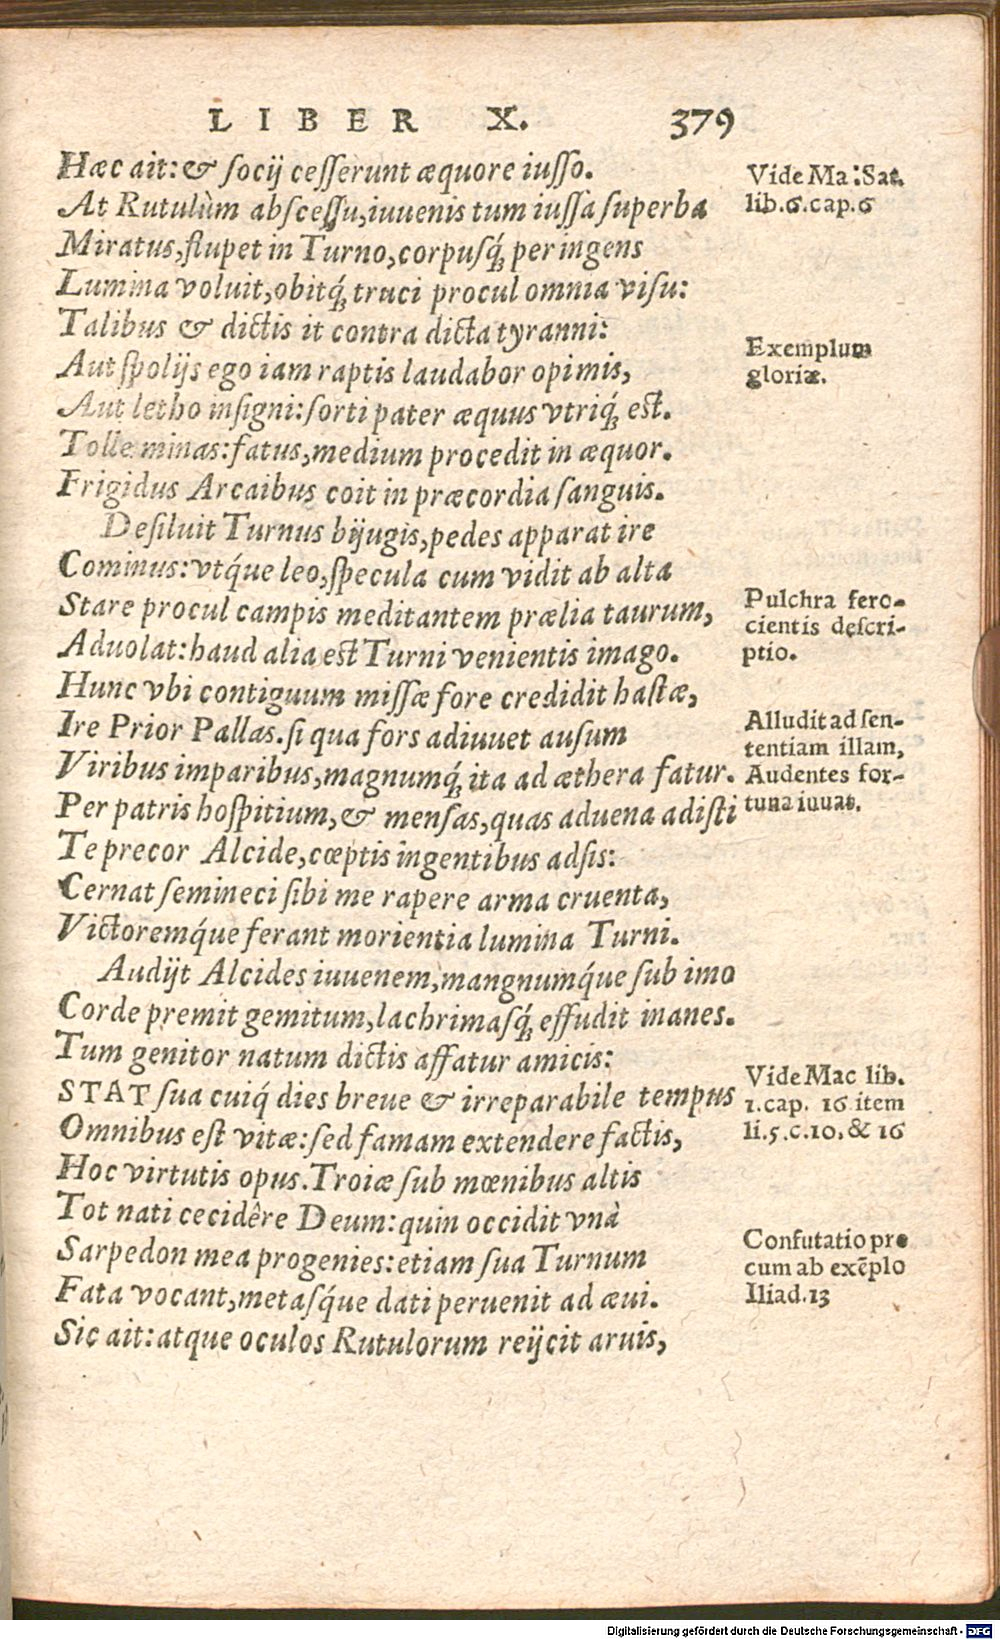 LIBER X. 379
Hæc ait: & ſocij ceſſerunt æquore iuſſo.
At Rutulùm abſceſſu, iuuenis tum iuſſa ſuperba
Miratus, ſtupet in Turno, corpuſq́; per ingens
Lumina voluit, obitq́; truci procul omnia viſu:
Talibus & dictis it contra dicta tyranni:
Aut ſpolijs ego iam raptis laudabor opimis,
Aut letho inſigni: ſorti pater æquus vtriq́; eſt.
Tolle minas: fatus, medium procedit in æquor.
Frigidus Arcaibus coit in præcordia ſanguis.
Deſiluit Turnus bijugis, pedes apparat ire
Cominus: vtq́ue leo, ſpecula cum vidit ab alta
Stare procul campis meditantem prælia taurum,
Aduolat: haud alia eſt Turni venientis imago.
Hunc vbi contiguum miſſæ fore credidit haſtæ,
Ire Prior Pallas. ſi qua fors adiuuet auſum
Viribus imparibus, magnumq́; ita ad æthera fatur.
Per patris hoſpitium, & menſas, quas aduena adiſti
Te precor Alcide, cœptis ingentibus adſis:
Cernat ſemineci ſibi me rapere arma cruenta,
Victoremq́ue ferant morientia lumina Turni.
Audijt Alcides iuuenem, mangnumq́ue ſub imo
Corde premit gemitum, lachrimaſq́; effudit inanes.
Tum genitor natum dictis affatur amicis:
STAT ſua cuiq́ dies breue & irreparabile tempus
Omnibus eſt vitæ: ſed famam extendere factis,
Hoc virtutis opus. Troiæ ſub mœnibus altis
Tot nati cecidêre Deum: quin occidit vnà
Sarpedon mea progenies: etiam ſua Turnum
Fata vocant, metaſq́ue dati peruenit ad æui.
Sic ait: atque oculos Rutulorum reijcit aruis,
Vide Ma: Sat.
lib.6.cap.6
Exemplum
gloriæ.
Pulchra fero-
cientis deſcri-
ptio.
Alludit ad ſen-
tentiam illam,
Audentes for-
tuna iuuat.
Vide Mac lib.
1.cap. 16 item
li.5.c.10, & 16
Confutatio pre
cum ab exẽplo
Iliad.13
Digitalisierung gefördert durch die Deutsche Forschungsgemeinschaft - DFG